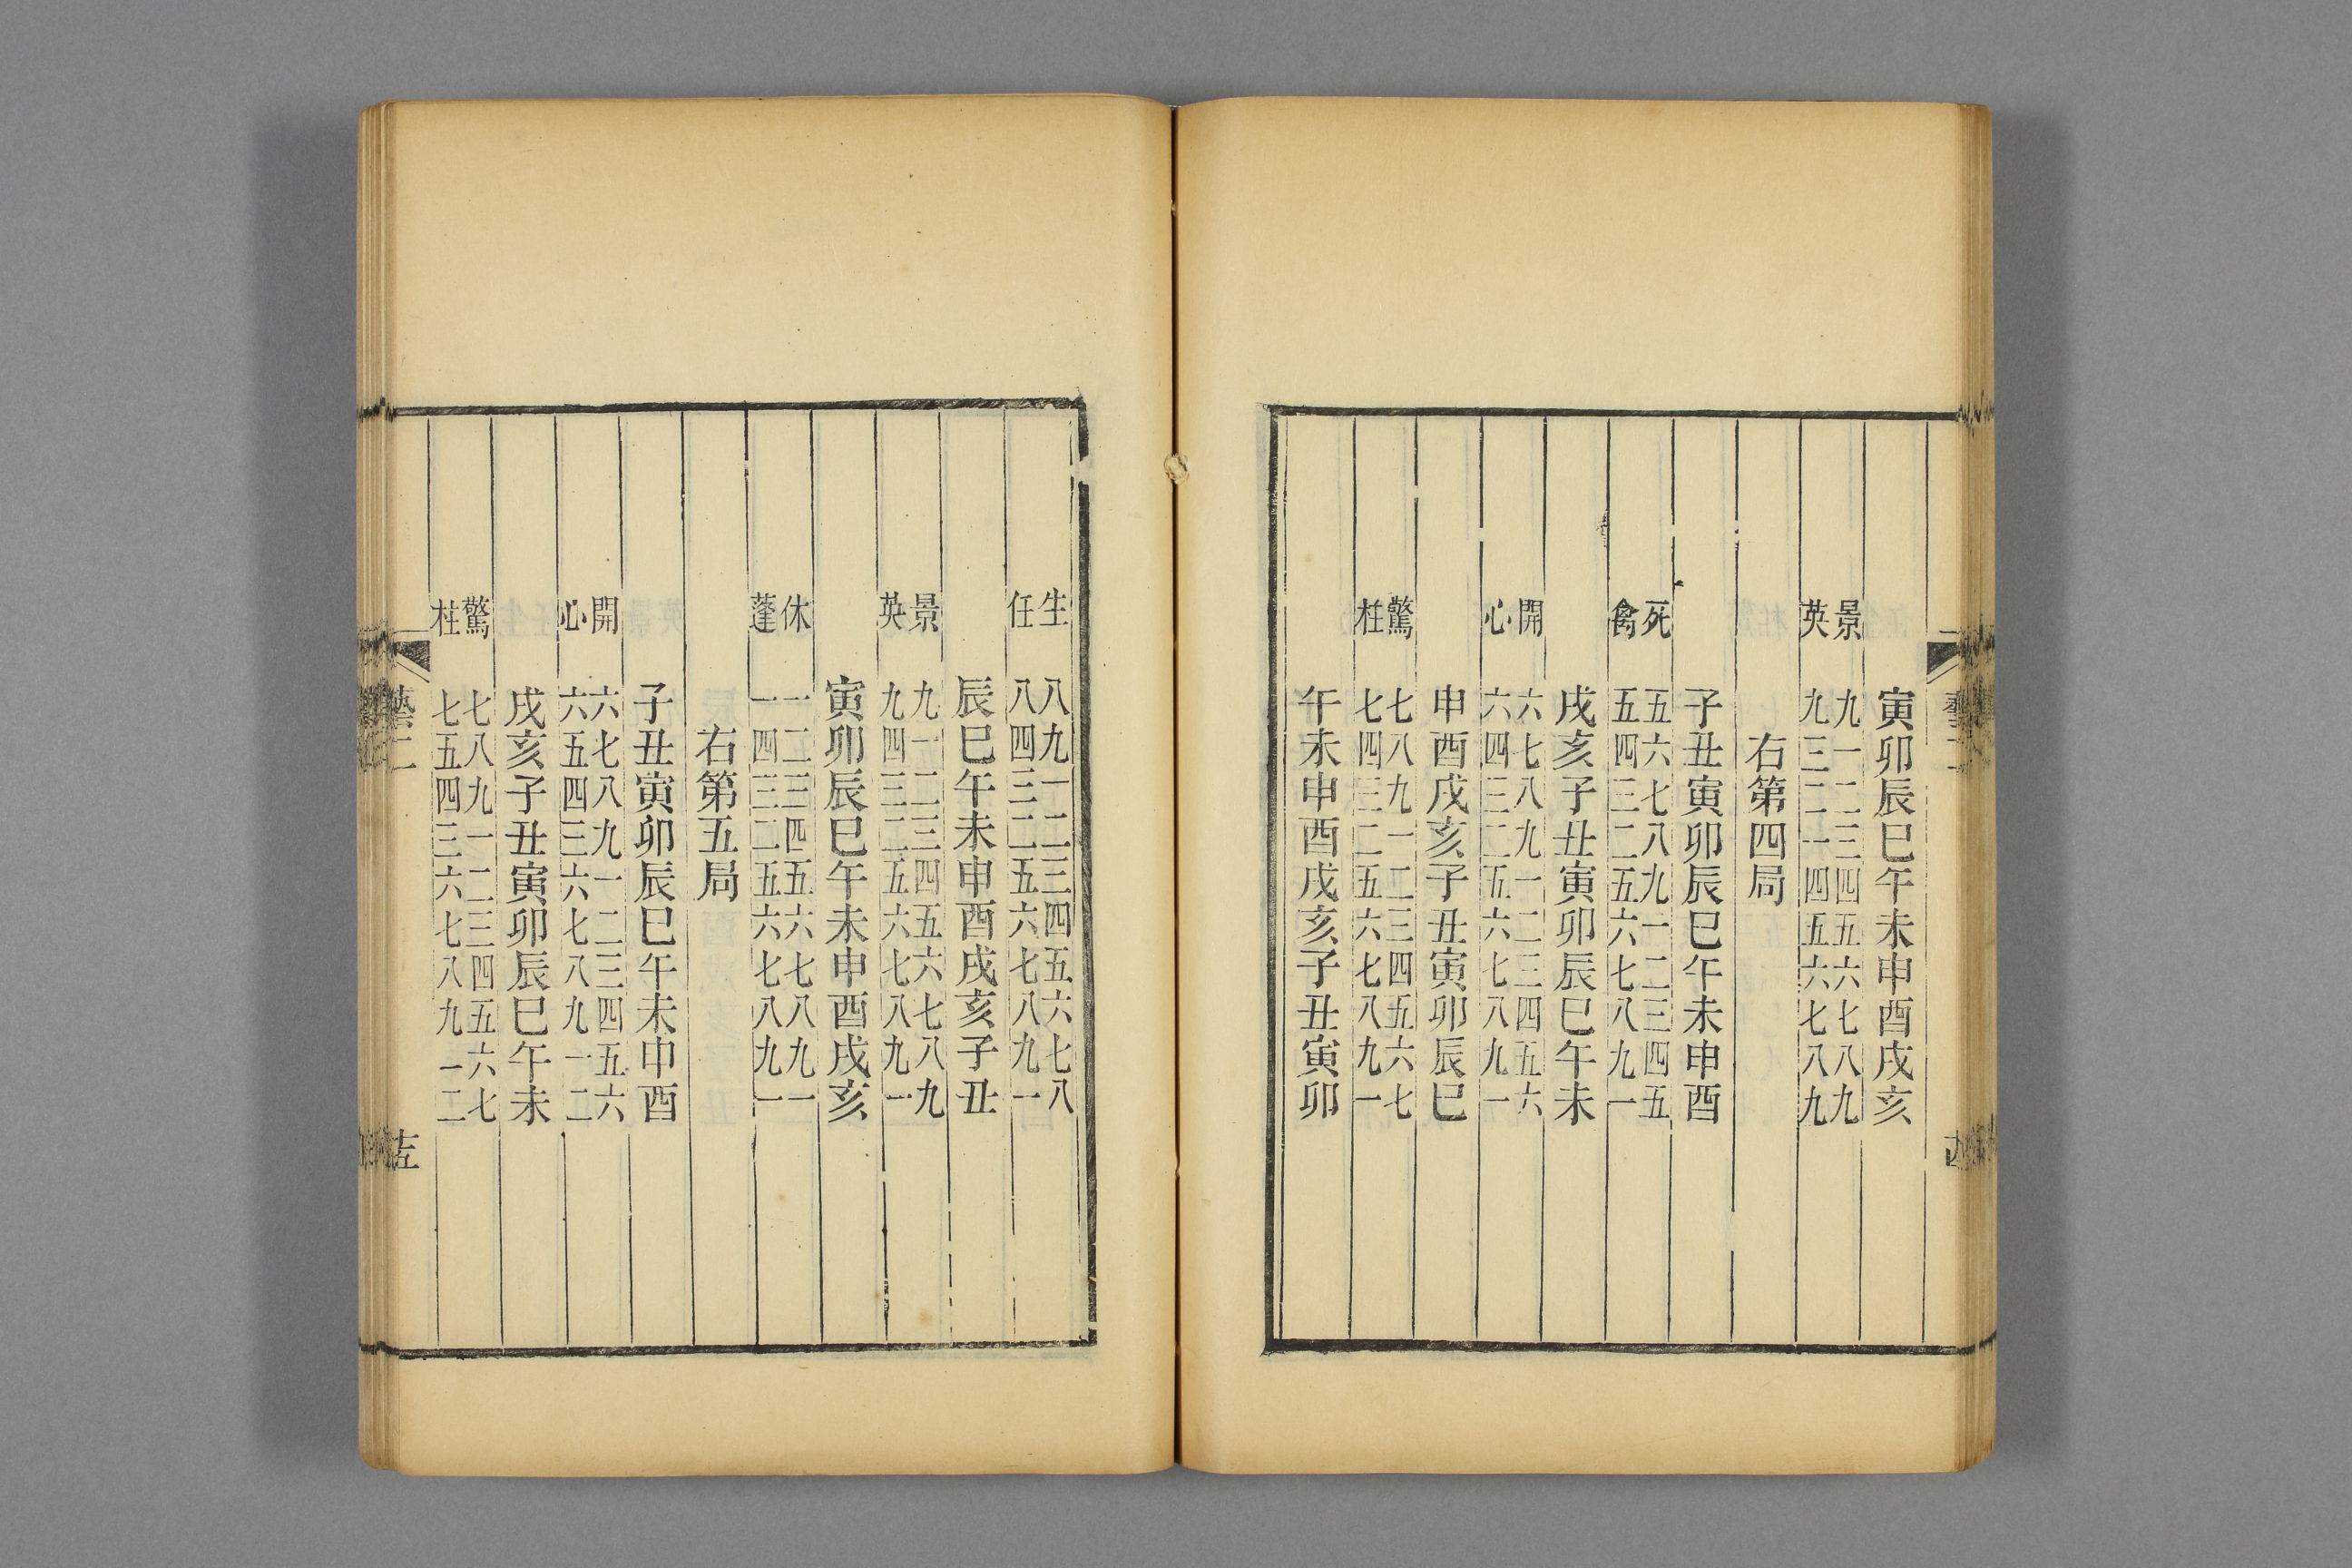 寅卯辰巳午未申酉戌亥
景 九一二三四五六七八九
英 九三二一四五六七八九
右第四局
子丑寅卯辰巳午未申酉
死 五六七八九一二三四五
禽 五四三二五六七八九一
戌亥子丑寅卯辰巳午未
開 六七八九一二三四五六
心 六四三二五六七八九一
申酉戌亥子丑寅卯辰巳
驚 七八九一二三四五六七
柱 七四三二五六七八九一
午未申酉戌亥子丑寅卯
生 八九一二三四五六七八
任 八四三二五六七八九一
辰巳午未申酉戌亥子丑
景 九一二三四五六七八九
英 九四三二五六七八九一
寅卯辰巳午未申酉戌亥
休 一二三四五六七八九一
蓬 一四三二五六七八九一
右第五局
子丑寅卯辰巳午未申酉
開 六七八九一二三四五六
心 六五四三六七八九一二
戌亥子丑寅卯辰巳午未
驚 七八九一二三四五六七
柱 七五四三六七八九一二
藝二